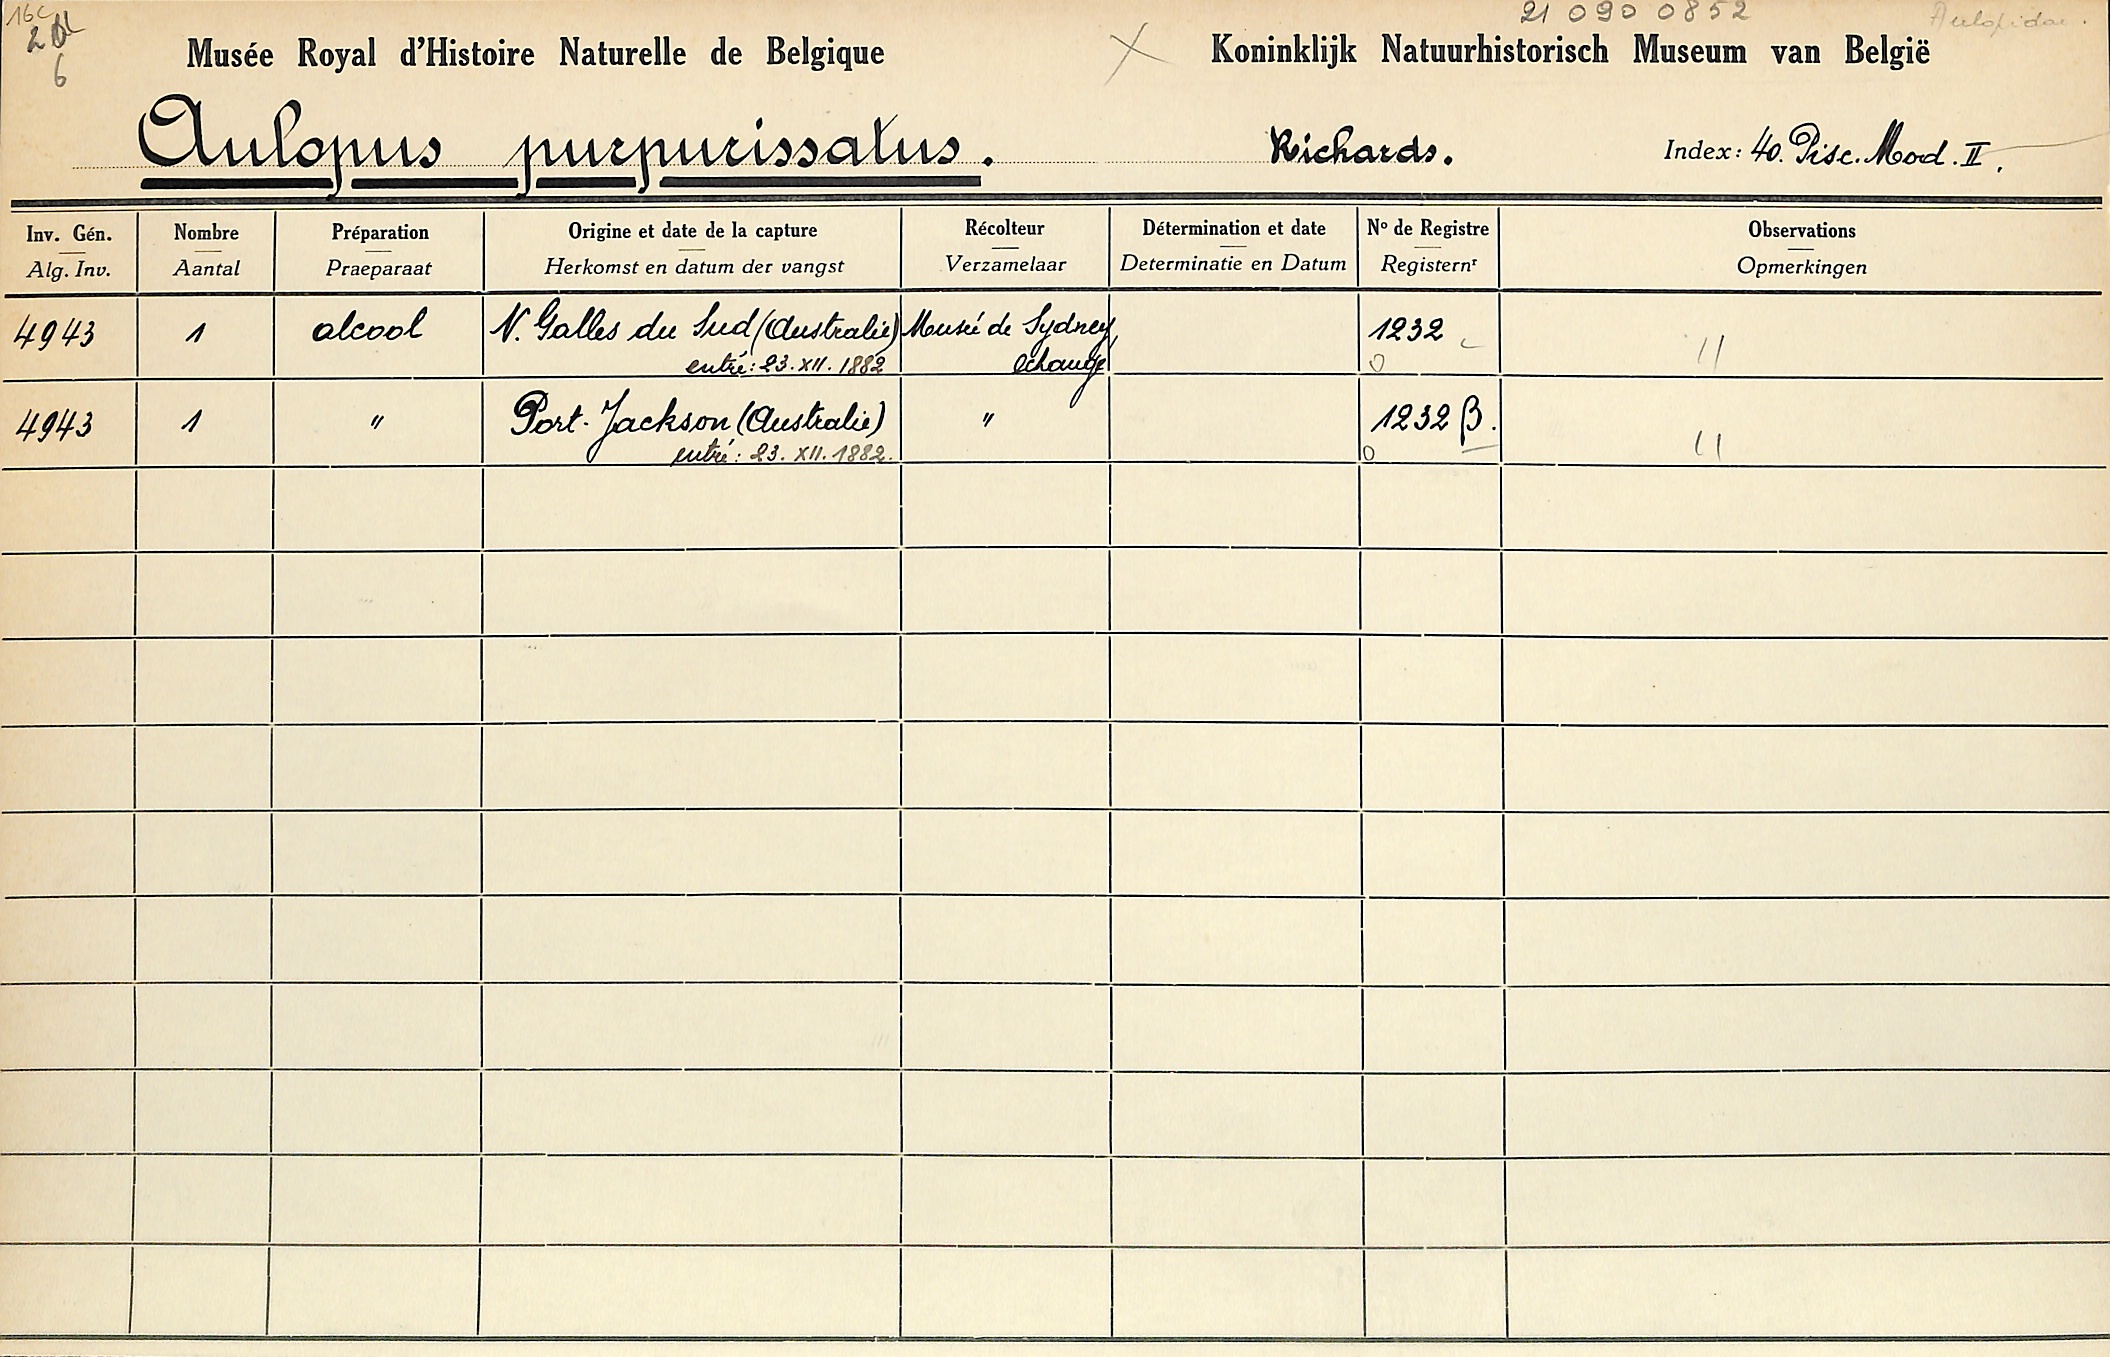 16c
6
21 090 0852
Aulopidae.
Musée Royal d'Histoire Naturelle de Belgique
Koninklijk Natuurhistorisch Museum van België
Aulopus purpurissatus. Richards. Index: 40. Pisc. Mod. II.
Inv. Gén. Nombre Préparation Origine et date de la capture Récolteur Détermination et date Nº de Registre Observations
Alg. Inv. Aantal Praeparaat Herkomst en datum der vangst Verzamelaar Determinatie en Datum Registernʳ Opmerkingen
4943 1 alcool N. Galles du Sud (Australie) Musée de Sydney, 1232
entré: 23. XII. 1882 échange
4943 1 " Port-Jackson (Australie) " 1232 β.
entré: 23. XII. 1882.